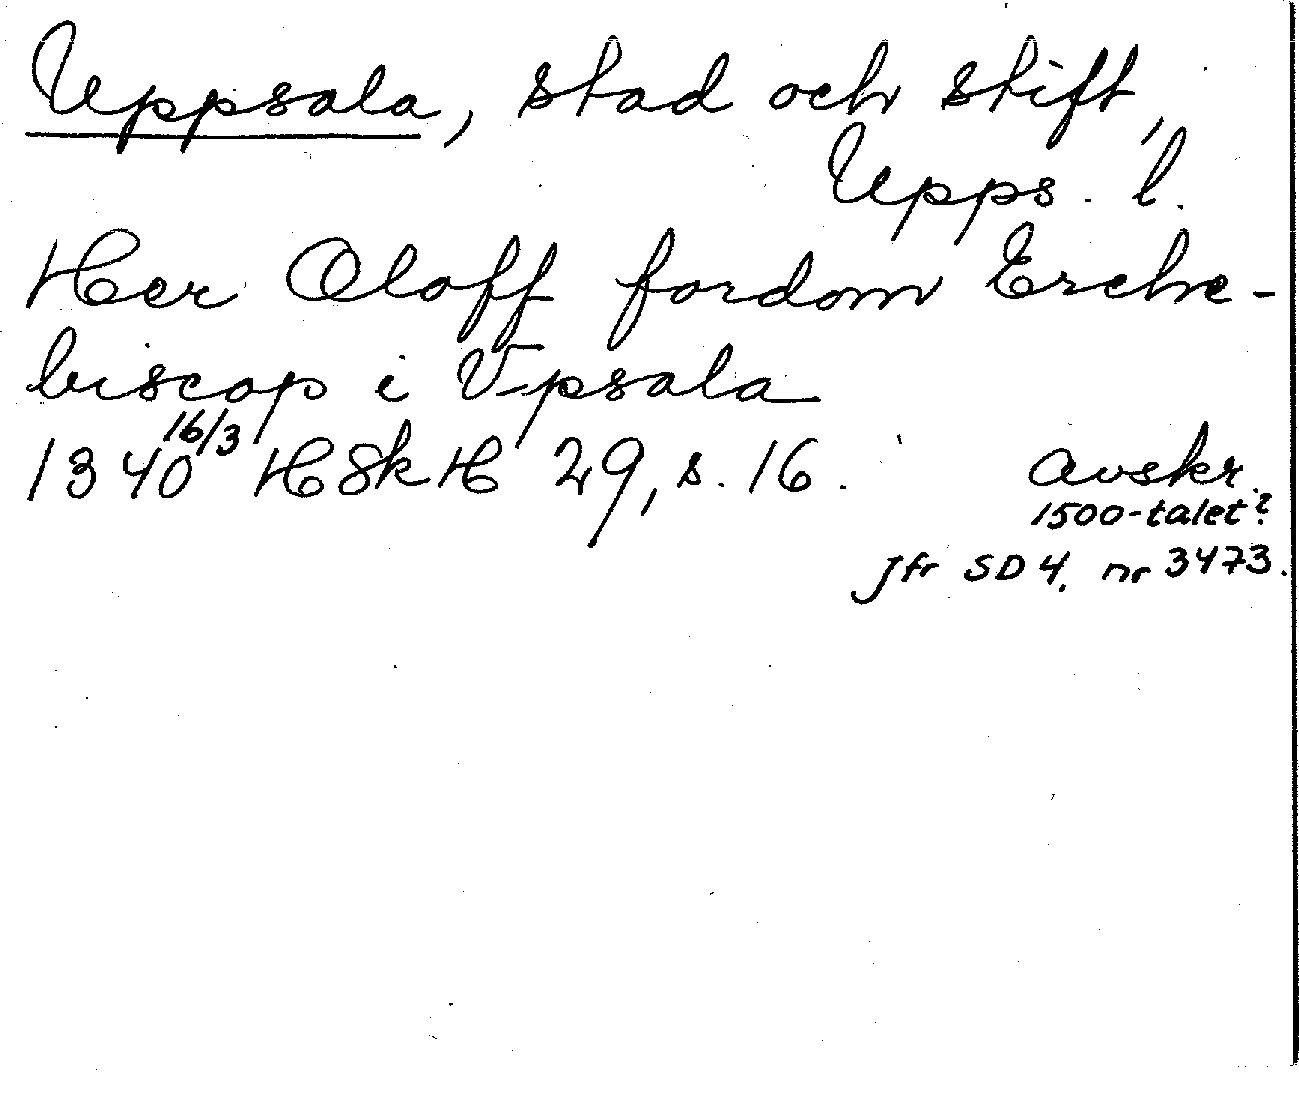 Uppsala, stad och stift,
Upps. l.
Her Oloff fordom Erche-
biscop i Vpsala
1340 16/3 HSkH 29, s. 16. Avskr.
1500-talet?
Jfr SD 4. nr 3473.